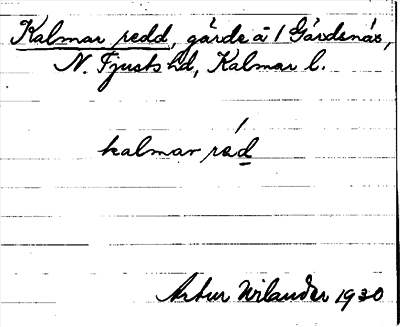 Kalmar redd, gärde å 1 Gärdsnäs,
N. Tjusts hd, Kalmar l.
kalmar réd
Artur Wilander 1930